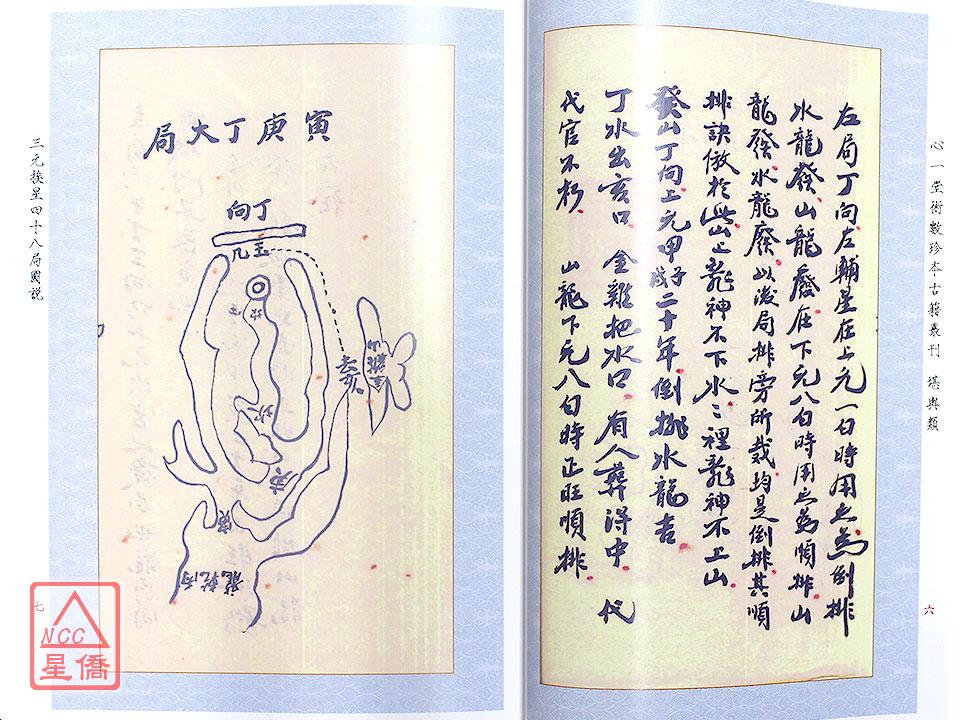 心一堂術數珍本古籍叢刊 堪輿類
六
左局丁向左輔星在上元一白時用之為倒排
水龍發山龍廢在下元八白時用之為順排山
龍發水龍廢以後局排旁所裁均是倒排其順
排訣倣於此山上龍神不下水水裡龍神不上山
癸山丁向上元甲子戌二十年倒排水龍吉
丁水出亥口 金雞把水口 有人葬得中 代
代官不朽 山龍下元八白時正旺順排
三元挨星四十八局圖說
七
寅庚丁大局
丁向
玉几
坎
庚
乾龍
NCC
星僑